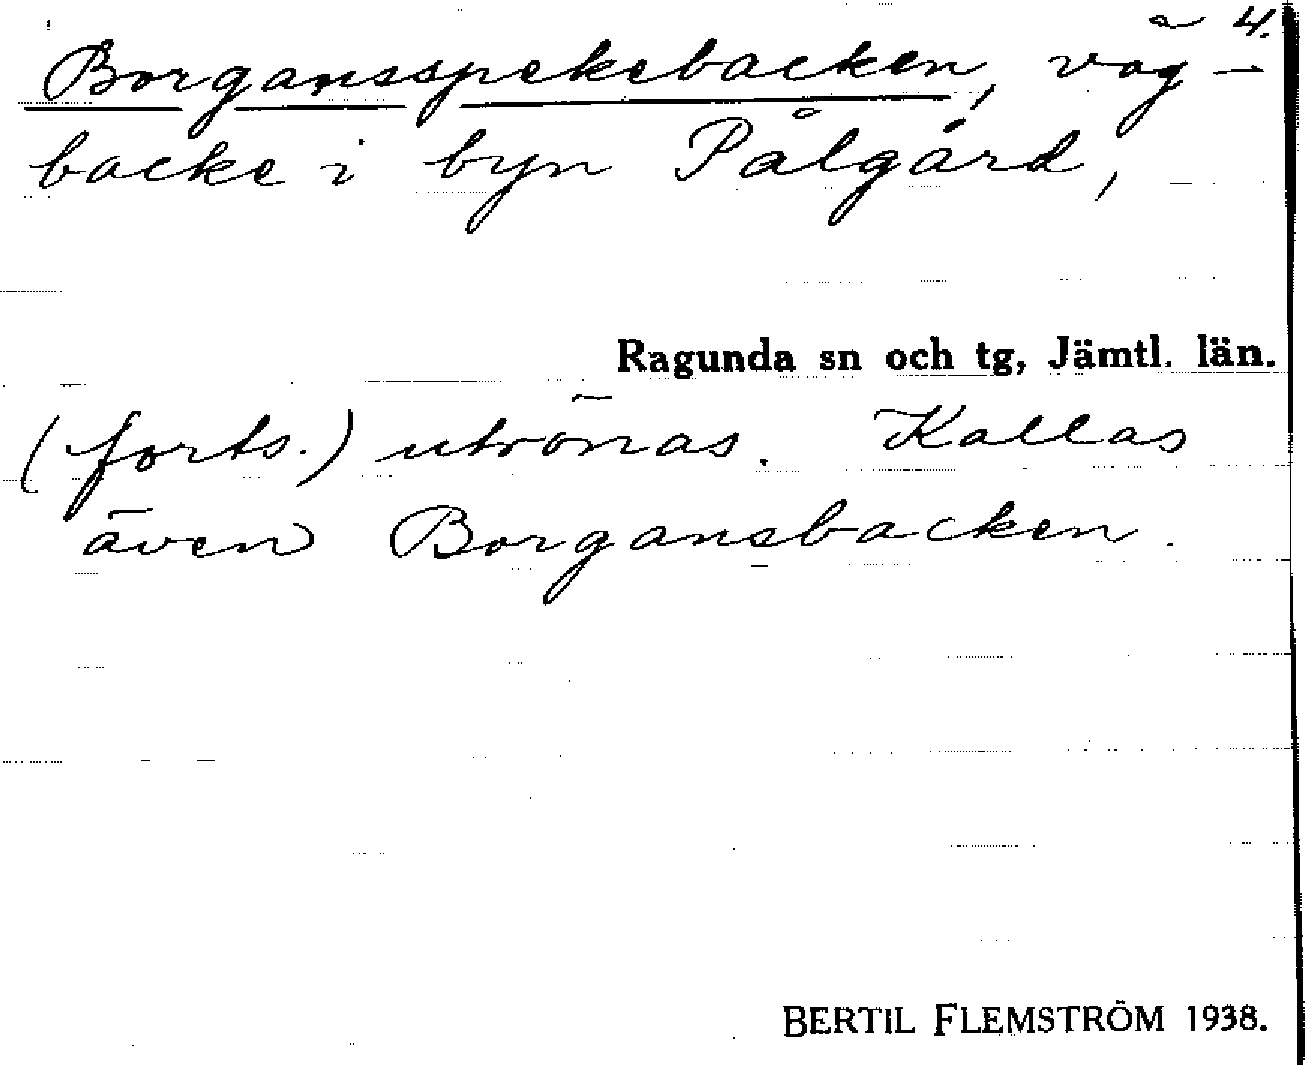 4.
Borgansspekebacken, väg-
backe i byn Pålgård,
Ragunda sn och tg, Jämtl. län.
(forts.) utrönas. Kallas
även Borgansbacken.
BERTIL FLEMSTRÖM 1938.